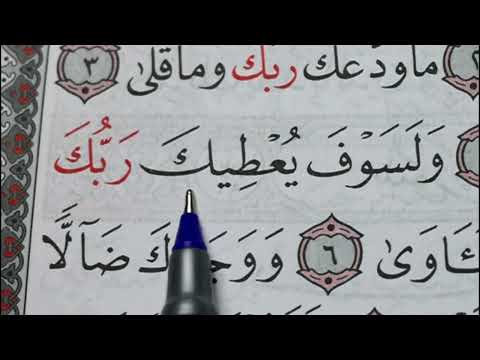 مَا وَدَّعَكَ رَبُّكَ وَمَا قَلَىٰ ٣
وَلَسَوْفَ يُعْطِيكَ رَبُّكَ
َٔاوَىٰ ٦ وَوَجَدَكَ ضَآلًّا